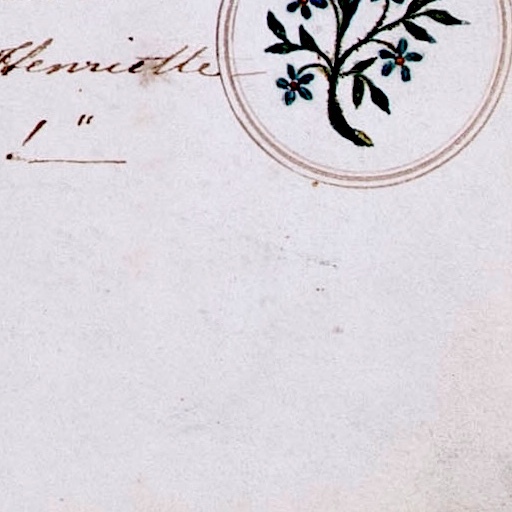 Henriette
1"